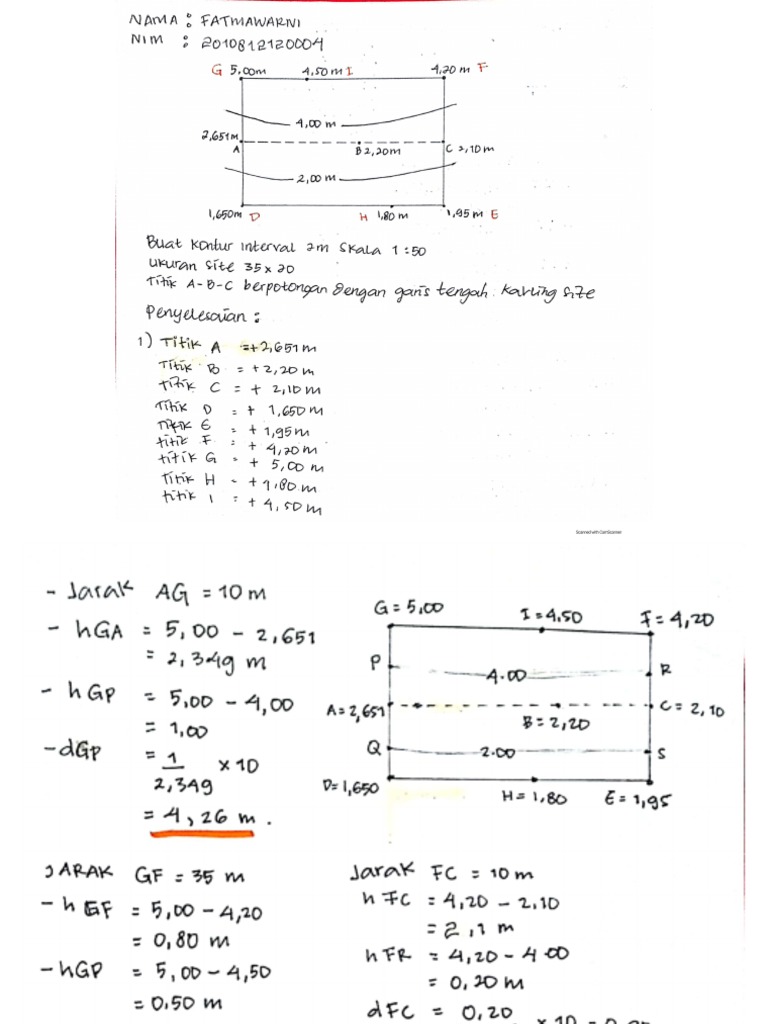 NAMA : FATMAWARNI
NIM : 2010812120004
G 5.00m 4,50m I 4,20 m F
4,00 m
2,651m
A B 2,20m C 2,10m
2,00 m
1,650m D H 1,80 m 1,95 m E
Buat kontur interval 2m skala 1:50
ukuran site 35 x 20
Titik A-B-C berpotongan dengan garis tengah kavling site
Penyelesaian :
1) Titik A = + 2,651 m
Titik B = + 2,20 m
titik C = + 2,10 m
Titik D = + 1,650 m
Titik E = + 1,95 m
titik F = + 4,20 m
titik G = + 5,00 m
Titik H = + 1,80 m
titik I = + 4,50 m
Scanned with CamScanner
- Jarak AG = 10 m
- hGA = 5,00 - 2,651
= 2,349 m
- hGP = 5,00 - 4,00
= 1,00
- dGP = 1 x 10
2,349
= 4,26 m.
G = 5,00 I = 4,50 F = 4,20
P 4.00 R
A = 2,651 B = 2,20 C = 2,10
Q 2.00 S
D = 1,650 H = 1,80 E = 1,95
JARAK GF = 35 m
- h GF = 5,00 - 4,20
= 0,80 m
- hGP = 5,00 - 4,50
= 0.50 m
Jarak FC = 10 m
h FC = 4,20 - 2.10
= 2,1 m
h FR = 4,20 - 4.00
= 0,20 m
dFC = 0,20 x 10 =